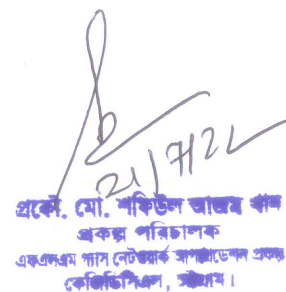 21/7/22
প্রকৌ. মো. শফিউল আজম খান
প্রকল্প পরিচালক
এফএলএম গ্যাস নেটওয়ার্ক আপগ্রেডেশন প্রকল্প
কেজিডিসিএল, চট্টগ্রাম।